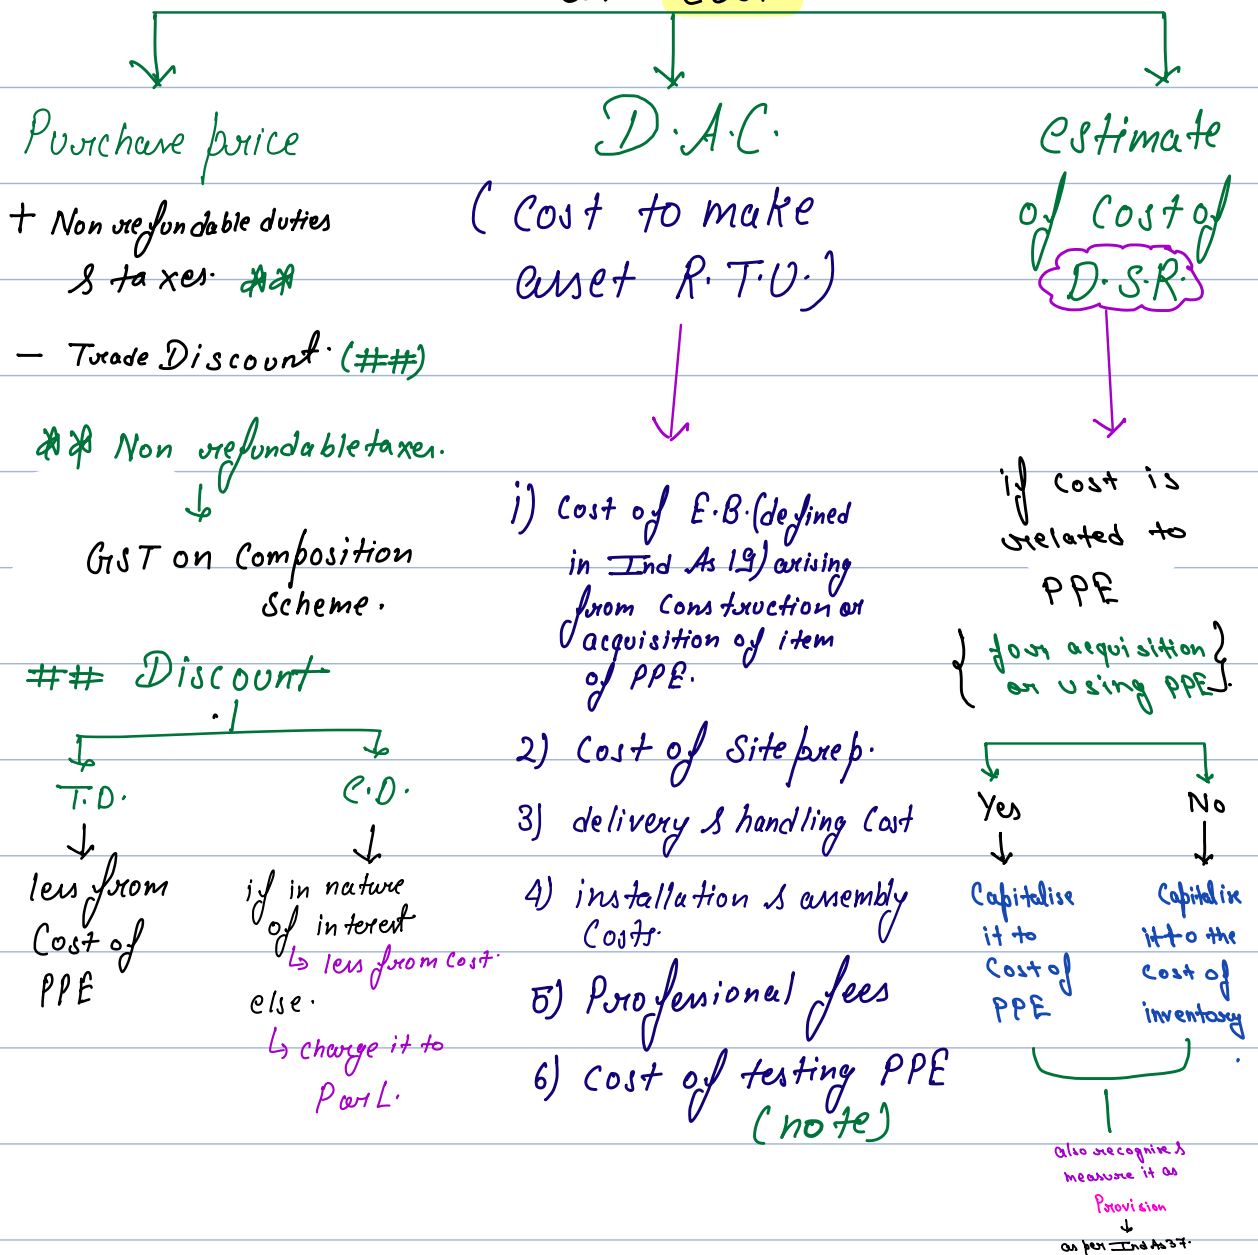 Purchase price
+ Non refundable duties
& taxes. **
- Trade Discount. (##)
** Non refundable taxes.
↓
GST on Composition
Scheme.
## Discount
T.D.
↓
less from
Cost of
PPE
C.D.
↓
if in nature
of interest
↳ less from cost.
else.
↳ charge it to
P or L.
D.A.C.
( Cost to make
asset R.T.U.)
i) Cost of E.B. (defined
in Ind As 19) arising
from Construction or
acquisition of item
of PPE.
2) Cost of Site prep.
3) delivery & handling Cost
4) installation & assembly
Costs.
5) Professional fees
6) Cost of testing PPE
(note)
estimate
of Cost of
D.S.R.
if Cost is
related to
PPE
{ for acquisition
or using PPE }.
Yes
↓
Capitalise
it to
Cost of
PPE
No
↓
Capitalise
it to the
Cost of
inventory.
also recognise &
measure it as
Provision
↓
as per Ind As 37.